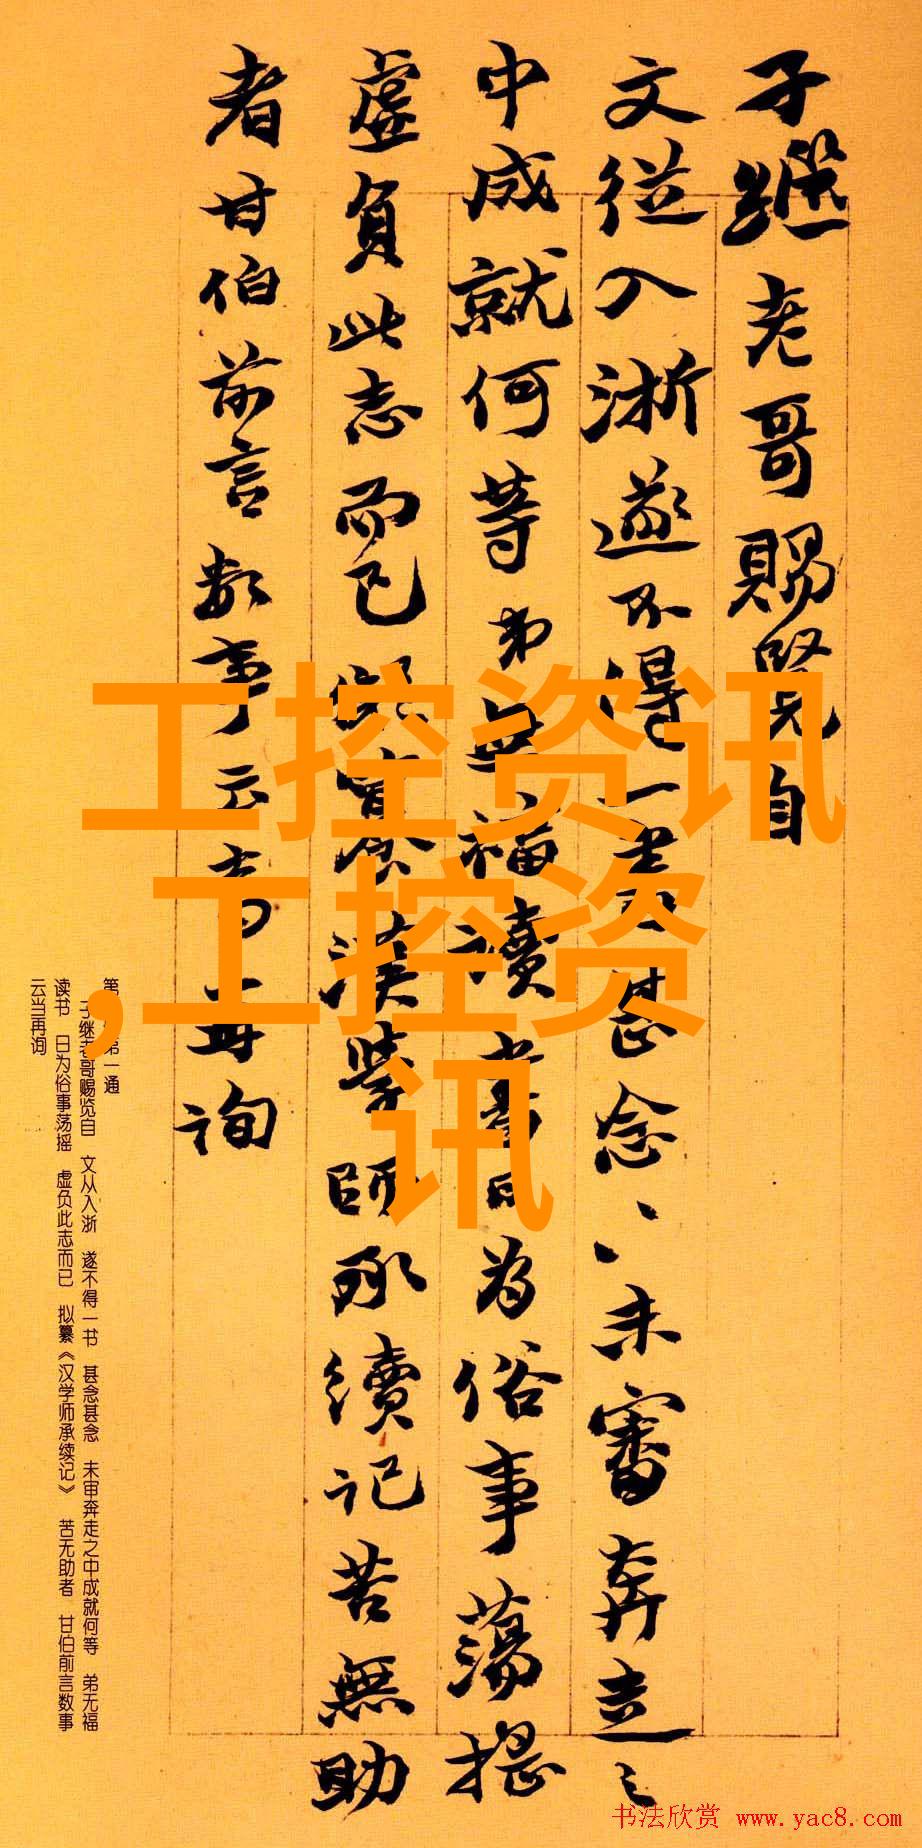 子繼老哥賜覽自
文從入浙遂不得一書甚念〻未審奔走之
中成就何等弟無福讀書日為俗事蕩搖
虛負此志而已擬纂漢學師承續記苦無助
者甘伯前言數事云當再詢
工控资讯
,工控资
讯
第 第一通
子继老哥赐览自 文从入浙 遂不得一书 甚念甚念 未审奔走之中成就何等 弟无福
读书 日为俗事荡摇 虚负此志而已 拟纂《汉学师承续记》 苦无助者 甘伯前言数事
云当再询
书法欣赏 www.yac8.com